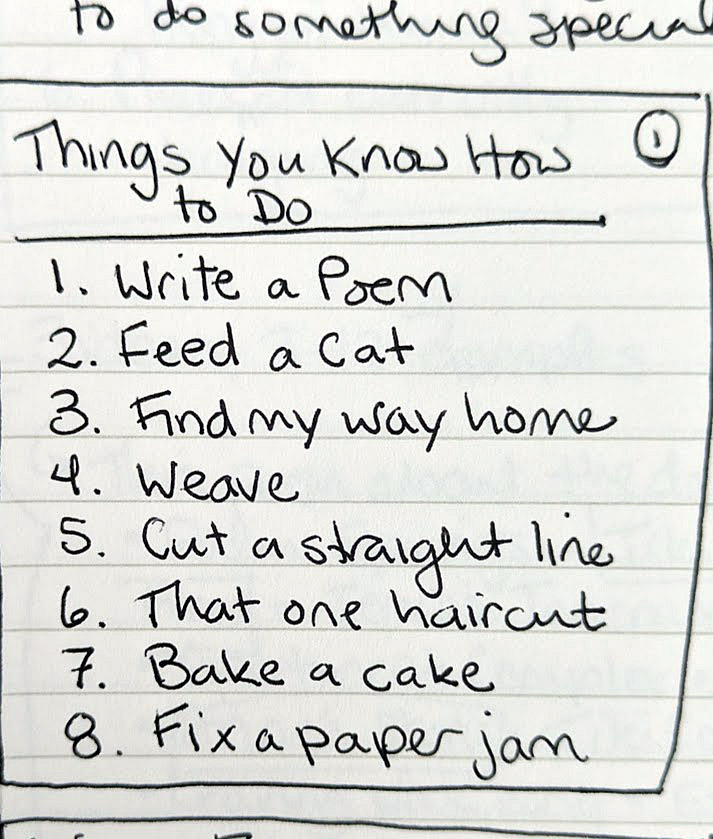 to do something special
Things You Know How
to Do
①
1. Write a Poem
2. Feed a Cat
3. Find my way home
4. Weave
5. Cut a straight line
6. That one haircut
7. Bake a cake
8. Fix a paper jam